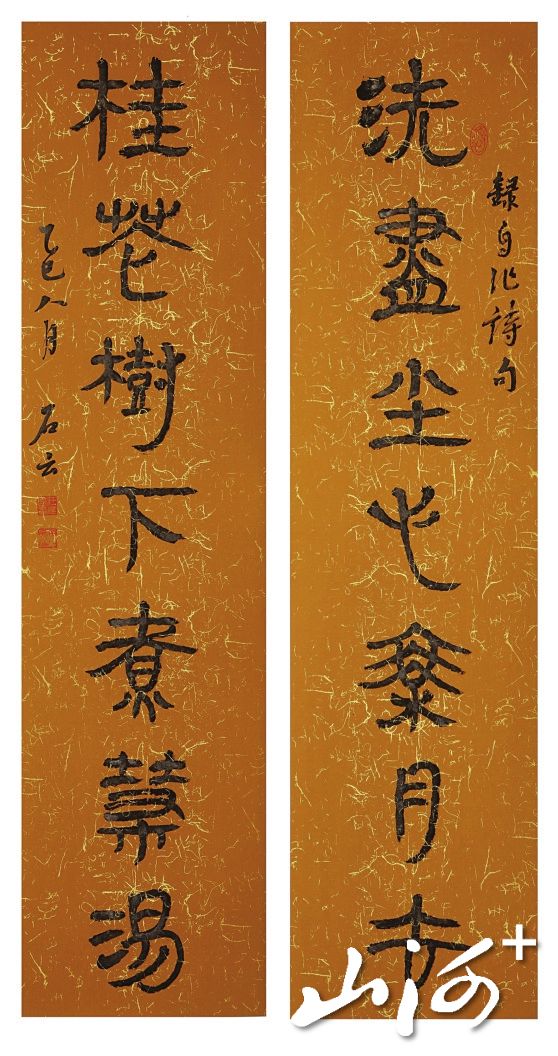 録自作詩句
洗盡尘心叅月
桂花樹下煮湯
乙巳八月 石云
山河+